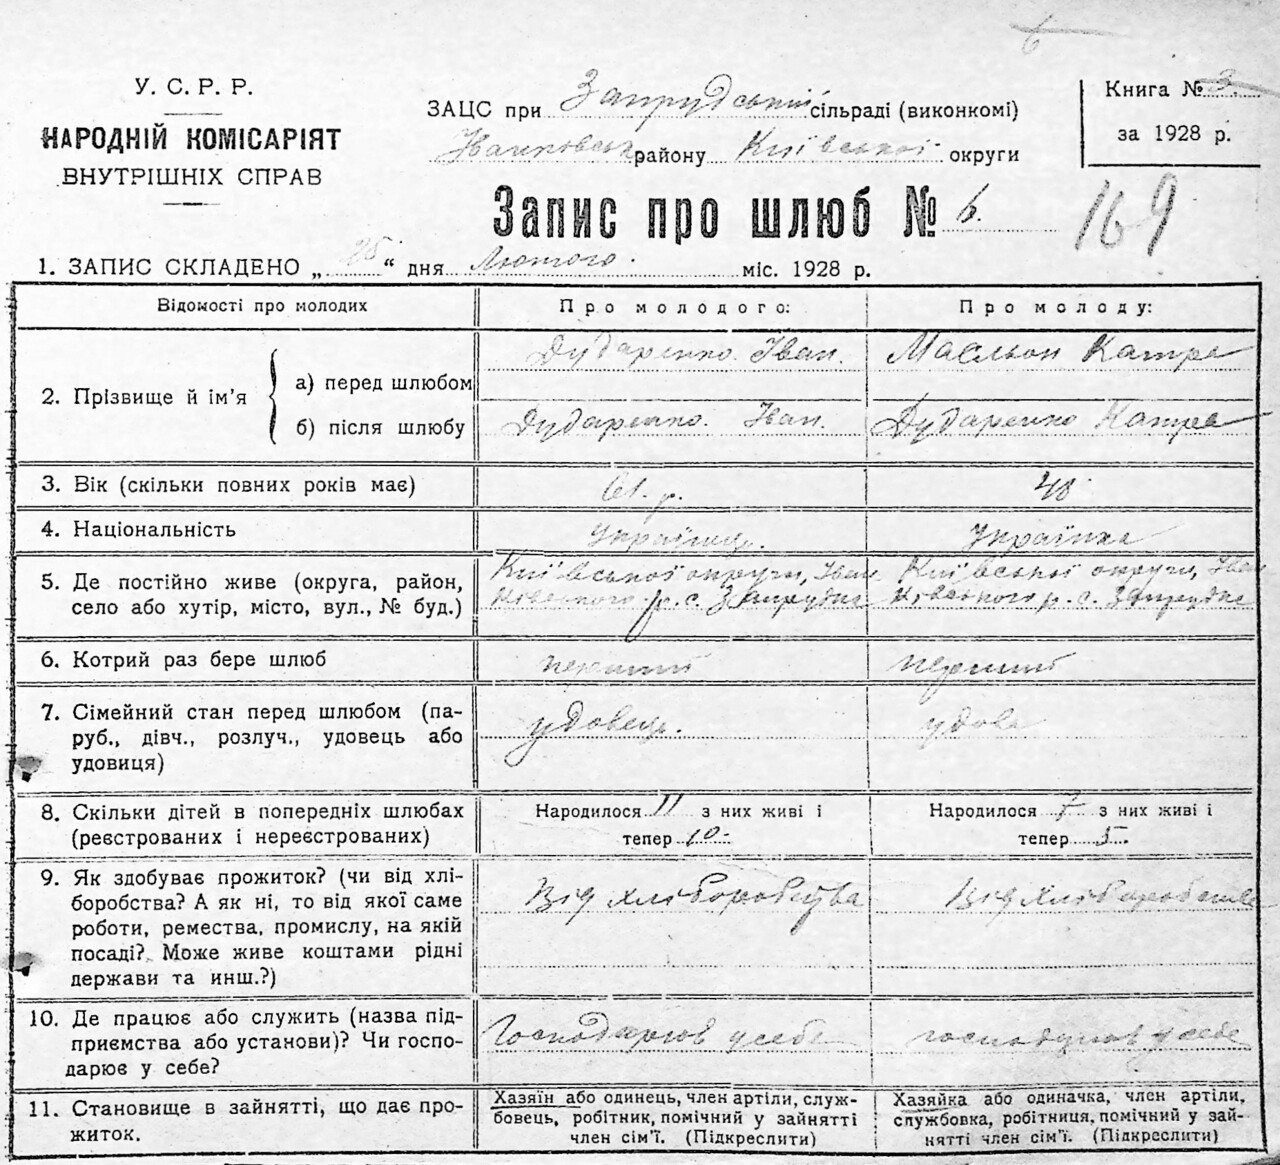 6
У. С. Р. Р.
НАРОДНІЙ КОМІСАРІЯТ
ВНУТРІШНІХ СПРАВ
ЗАЦС при Запрудській сільраді (виконкомі)
району Київської округи
Книга № 3.
за 1928 р.
Запис про шлюб № 6.
169
1. ЗАПИС СКЛАДЕНО „ 25 “ дня Лютого. міс. 1928 р.
Відомості про молодих
Про молодого:
Про молоду:
2. Прізвище й ім’я
а) перед шлюбом
Дударенко Іван.
Масльон Катре
б) після шлюбу
Дударенко. Іван.
Дударенко Катре
3. Вік (скільки повних років має)
61. р.
48
4. Національність
Українец.
Українка
5. Де постійно живе (округа, район,
село або хутір, місто, вул., № буд.)
Київської округи, Іван
ківського р. с. Запрудка
Київської округи, Іван
ківського р. с. Запрудка
6. Котрий раз бере шлюб
перший
перший
7. Сімейний стан перед шлюбом (па-
руб., дівч., розлуч., удовець або
удовиця)
удовець.
удова
8. Скільки дітей в попередніх шлюбах
(реєстрованих і нереєстрованих)
Народилося 11 з них живі і
тепер 10
Народилося 7 з них живі і
тепер 5.
9. Як здобуває прожиток? (чи від хлі-
боробства? А як ні, то від якої саме
роботи, ремества, промислу, на якій
посаді? Може живе коштами рідні
держави та инш.?)
Від хліборобства
Від хліборобства
10. Де працює або служить (назва під-
приємства або установи)? Чи госпо-
дарює у себе?
у себе
у себе
11. Становище в зайнятті, що дає про-
житок.
Хазяїн або одинець, член артіли, служ-
бовець, робітник, помічний у зайнятті
член сім’ї. (Підкреслити)
Хазяйка або одиначка, член артіли,
службовка, робітниця, помічний у зай-
нятті член сім’ї. (Підкреслити)